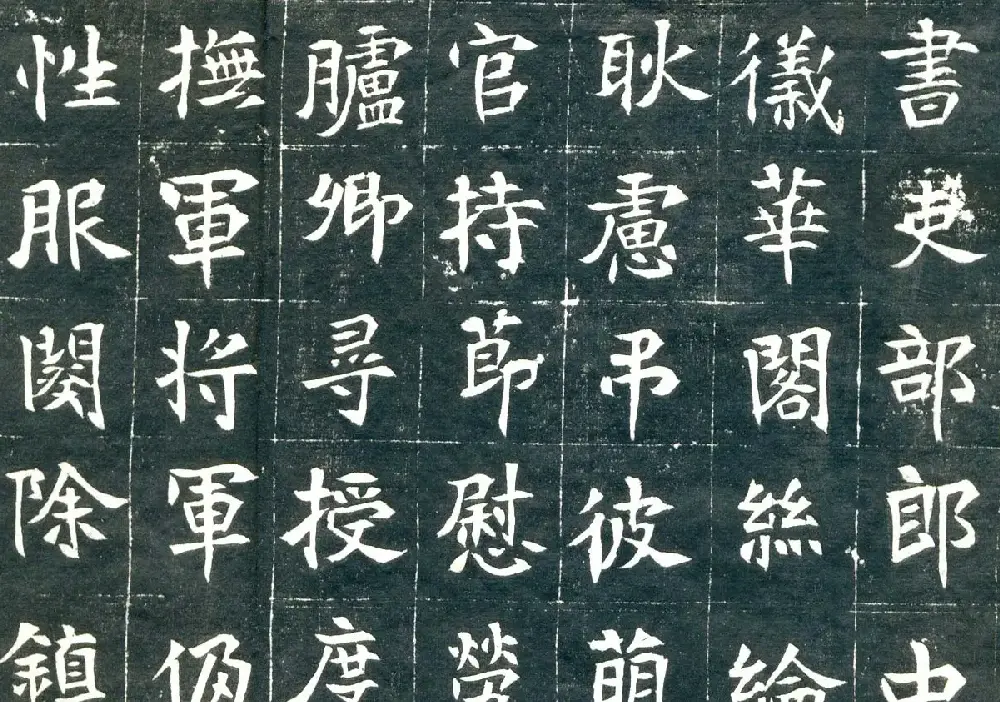 書吏部郎中
徽華閣絲綸
耿慮弔彼萌
官持節慰勞
臚卿尋授度
撫軍將軍仍
性服闋除鎮